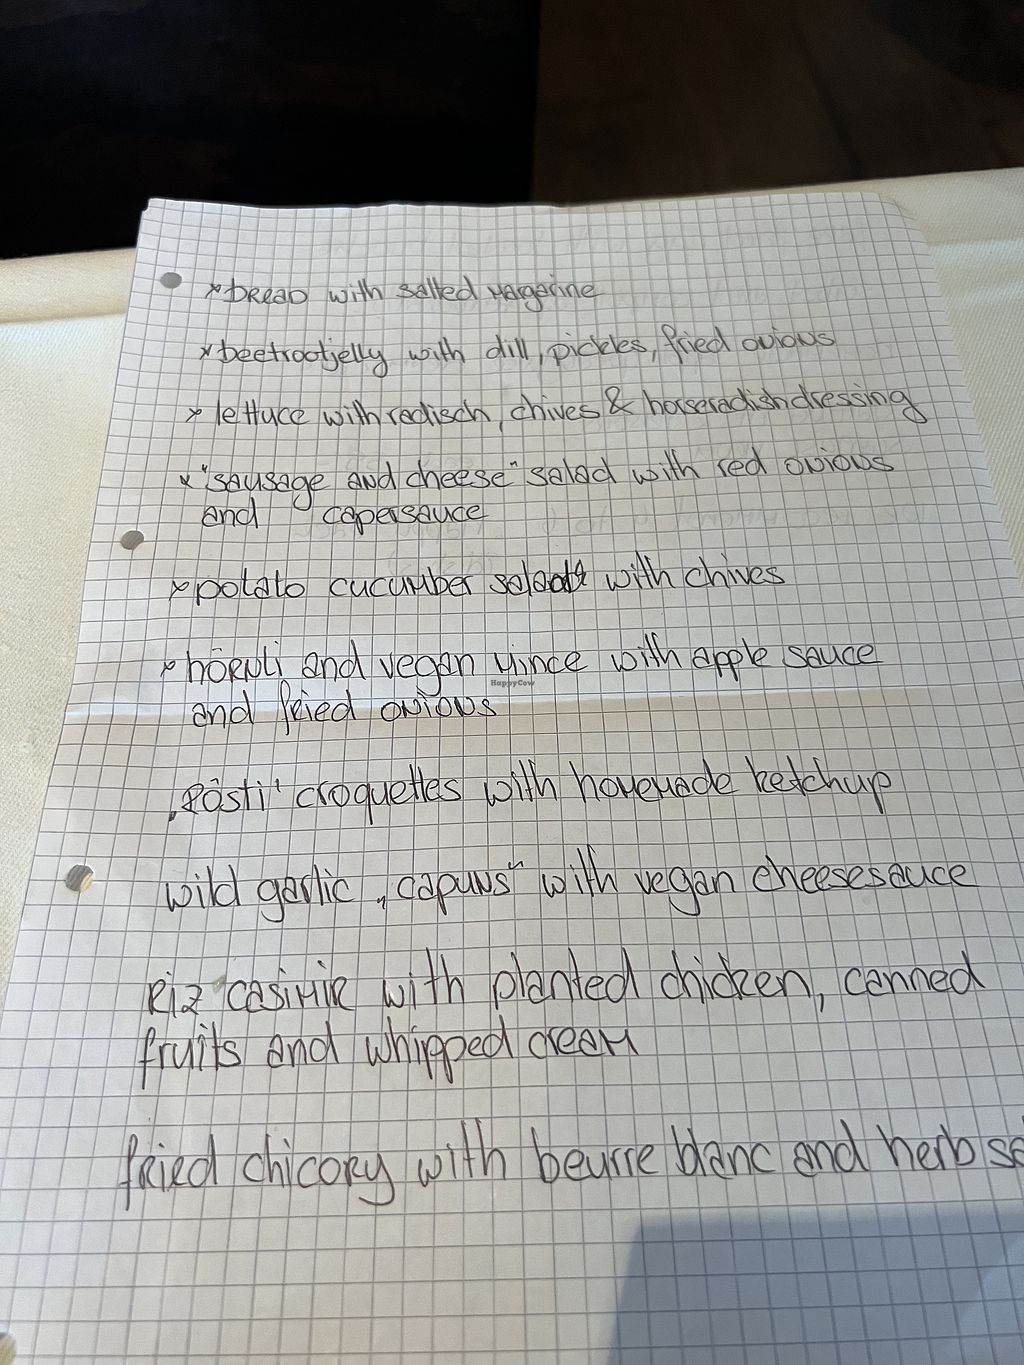 * bread with salted margarine
* beetrootjelly with dill, pickles, fried onions
* lettuce with redisch, chives & horseradishdressing
* "sausage and cheese" salad with red onions
and capersauce
* potato cucumber salad with chives
* hörnli and vegan mince with apple sauce
HappyCow
and fried onions
„Rösti" croquettes with homemade ketchup
wild garlic „capuns" with vegan cheesesauce
Riz casimir with planted chicken, canned
fruits and whipped cream
fried chicory with beurre blanc and herb